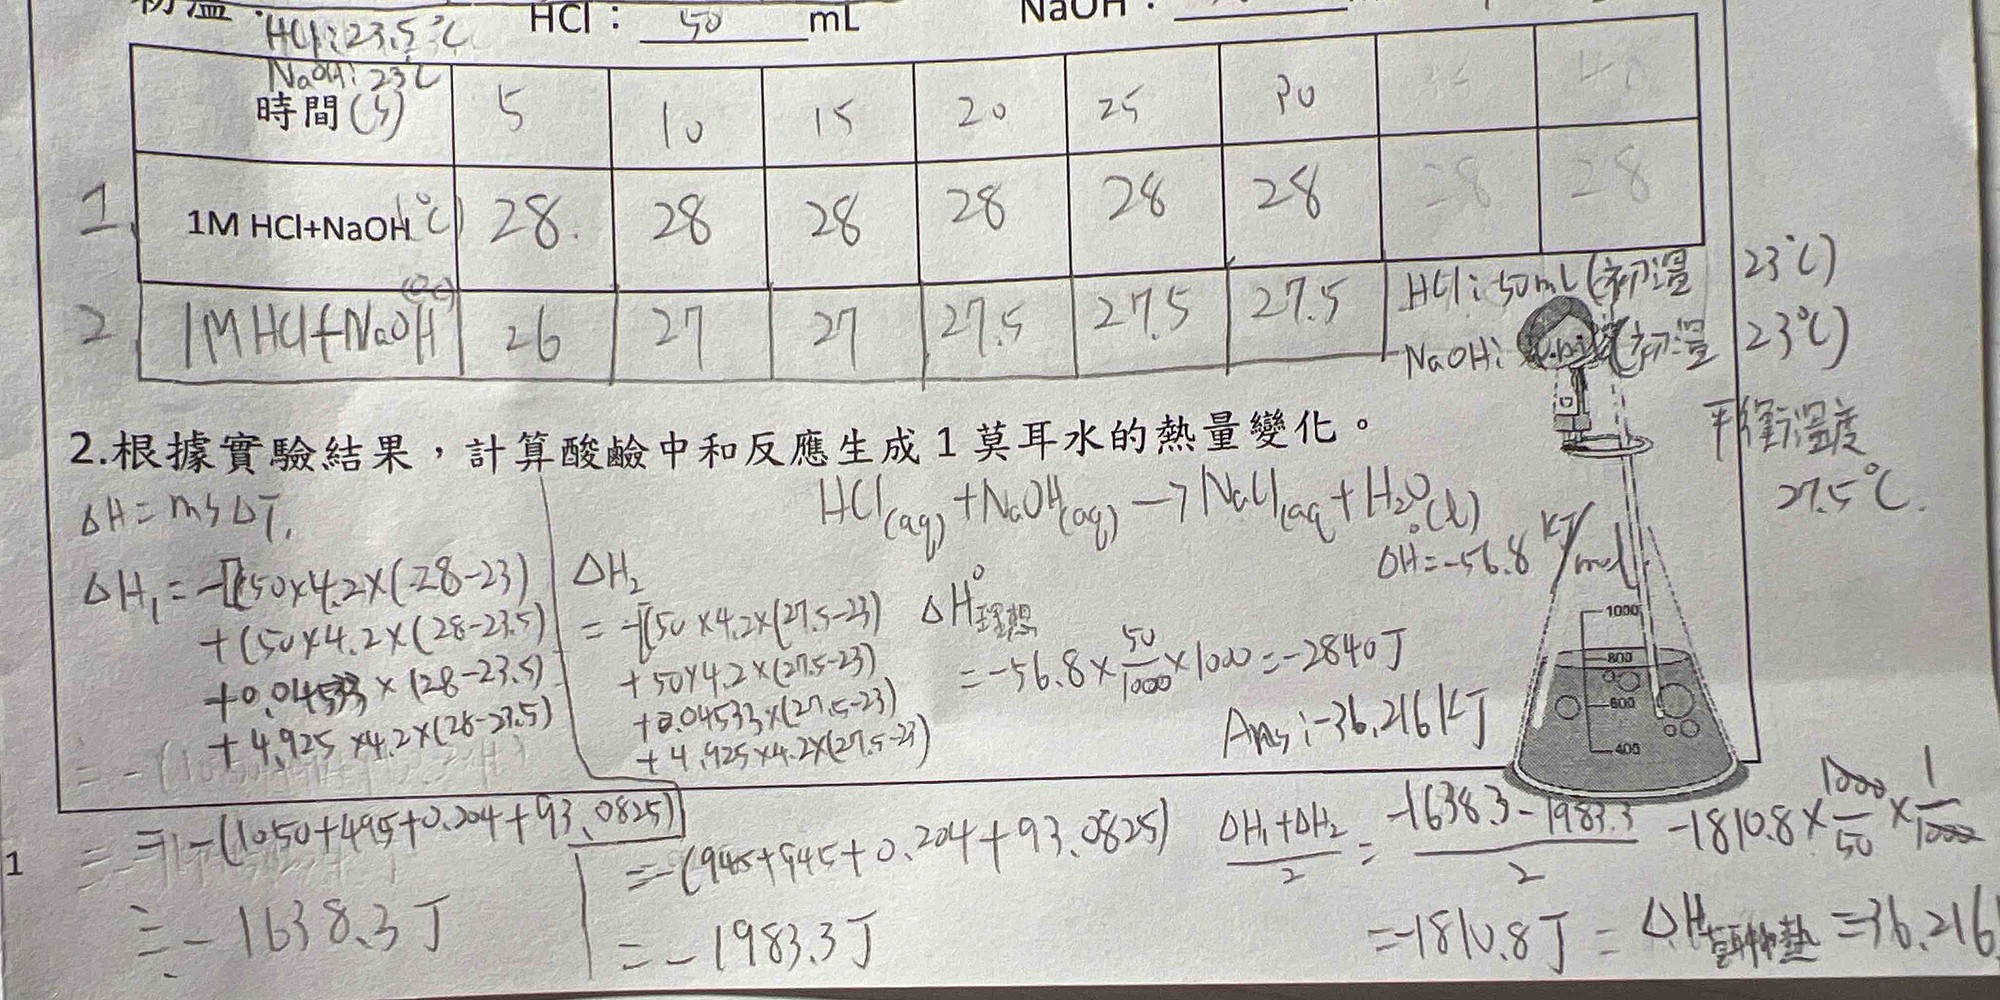 初溫:
HCl:23.5℃ HCl: 50 mL NaOH:
NaOH:23℃
時間(s) 5 10 15 20 25 30
1. 1M HCl+NaOH(℃) 28. 28 28 28 28 28 28 28
2 1M HCl+NaOH(℃) 26 27 27 27.5 27.5 27.5
HCl:50mL(初溫 23℃)
NaOH: (初溫 23℃)
平衡溫度
27.5℃.
2.根據實驗結果，計算酸鹼中和反應生成 1 莫耳水的熱量變化。
ΔH=msΔT,
HCl(aq)+NaOH(aq)→NaCl(aq+H2O(l)
ΔH°=-56.8 KJ/mol
ΔH1=-[(50×4.2×(28-23)
+(50×4.2×(28-23.5)
+0.04533×(28-23.5)
+4.925×4.2×(28-23.5)
=-(1050+495+0.204+93.0825)
=-1638.3J
ΔH2
=-[(50×4.2×(27.5-23)
+50×4.2×(27.5-23)
+0.04533×(27.5-23)
+4.925×4.2×(27.5-23)
=-(945+945+0.204+93.0825)
=-1983.3J
ΔH°理想
=-56.8×50/1000×1000=-2840J
Ans:-36.216KJ
1000
800
600
400
ΔH1+ΔH2/2=-1638.3-1983.3/2 -1810.8×1000/50×1/1000
=-1810.8J=ΔH莫耳中和熱=36.216
1